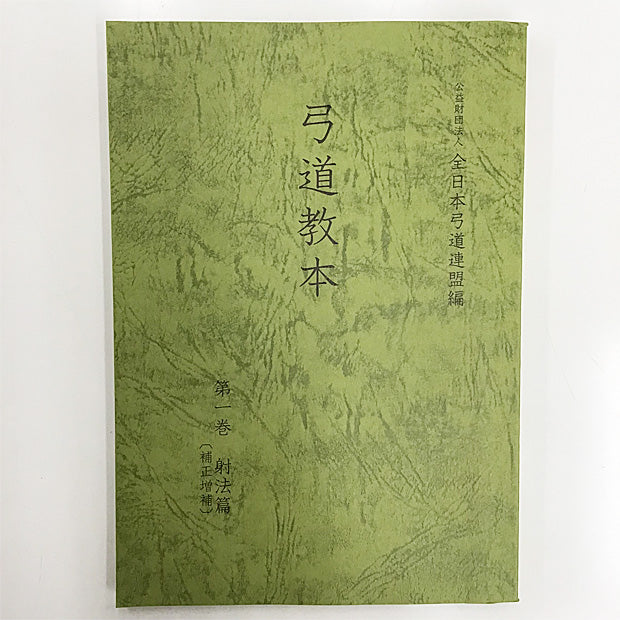 公益財団法人 全日本弓道連盟編
弓道教本
第一巻 射法篇
〔補正増補〕